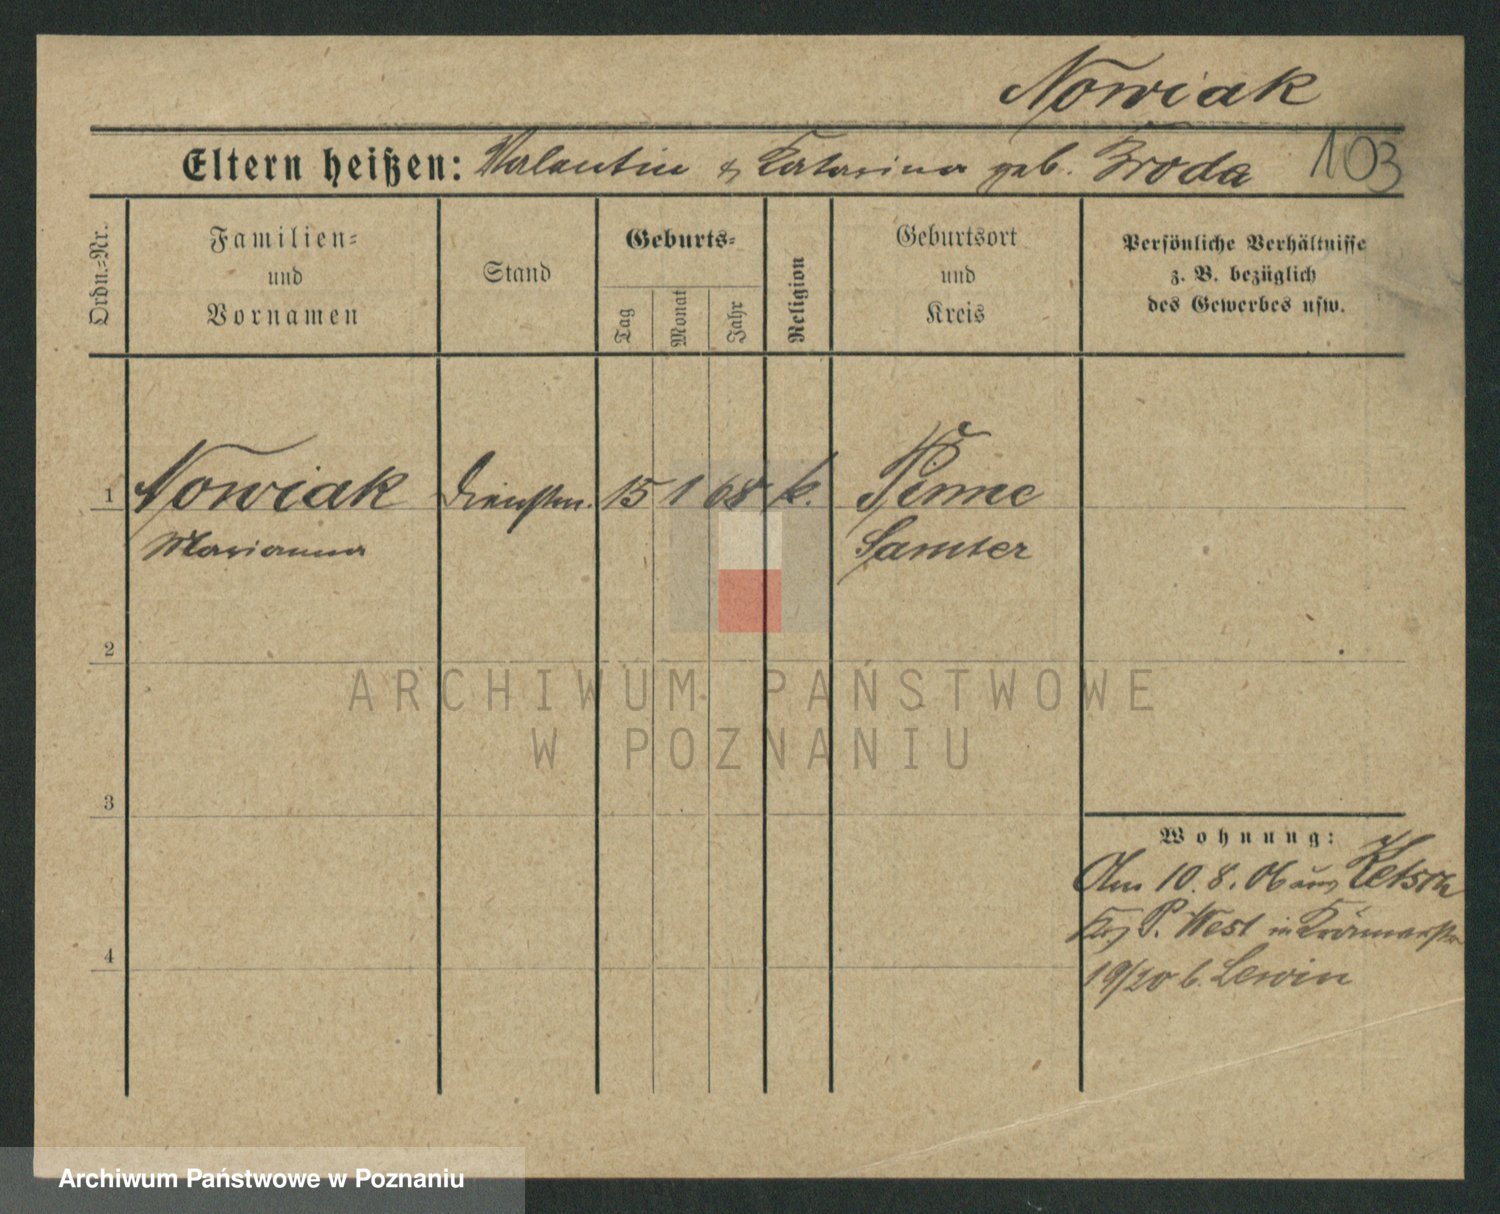 Nowiak
Eltern heißen: Valentin & Katarina geb. Broda 103
Ordn.-Nr.
Familien-
und
Vornamen
Stand
Geburts-
Tag
Monat
Jahr
Religion
Geburtsort
und
Kreis
Persönliche Verhältnisse
z. B. bezüglich
des Gewerbes usw.
1 Nowiak Dienstm. 15 1 68 k. Pinne
Marianna Samter
2
ARCHIWUM PAŃSTWOWE
W POZNANIU
3
Wohnung:
Am 10. 8. 06 aus
P. West in
4
19/20 b. Lewin
Archiwum Państwowe w Poznaniu